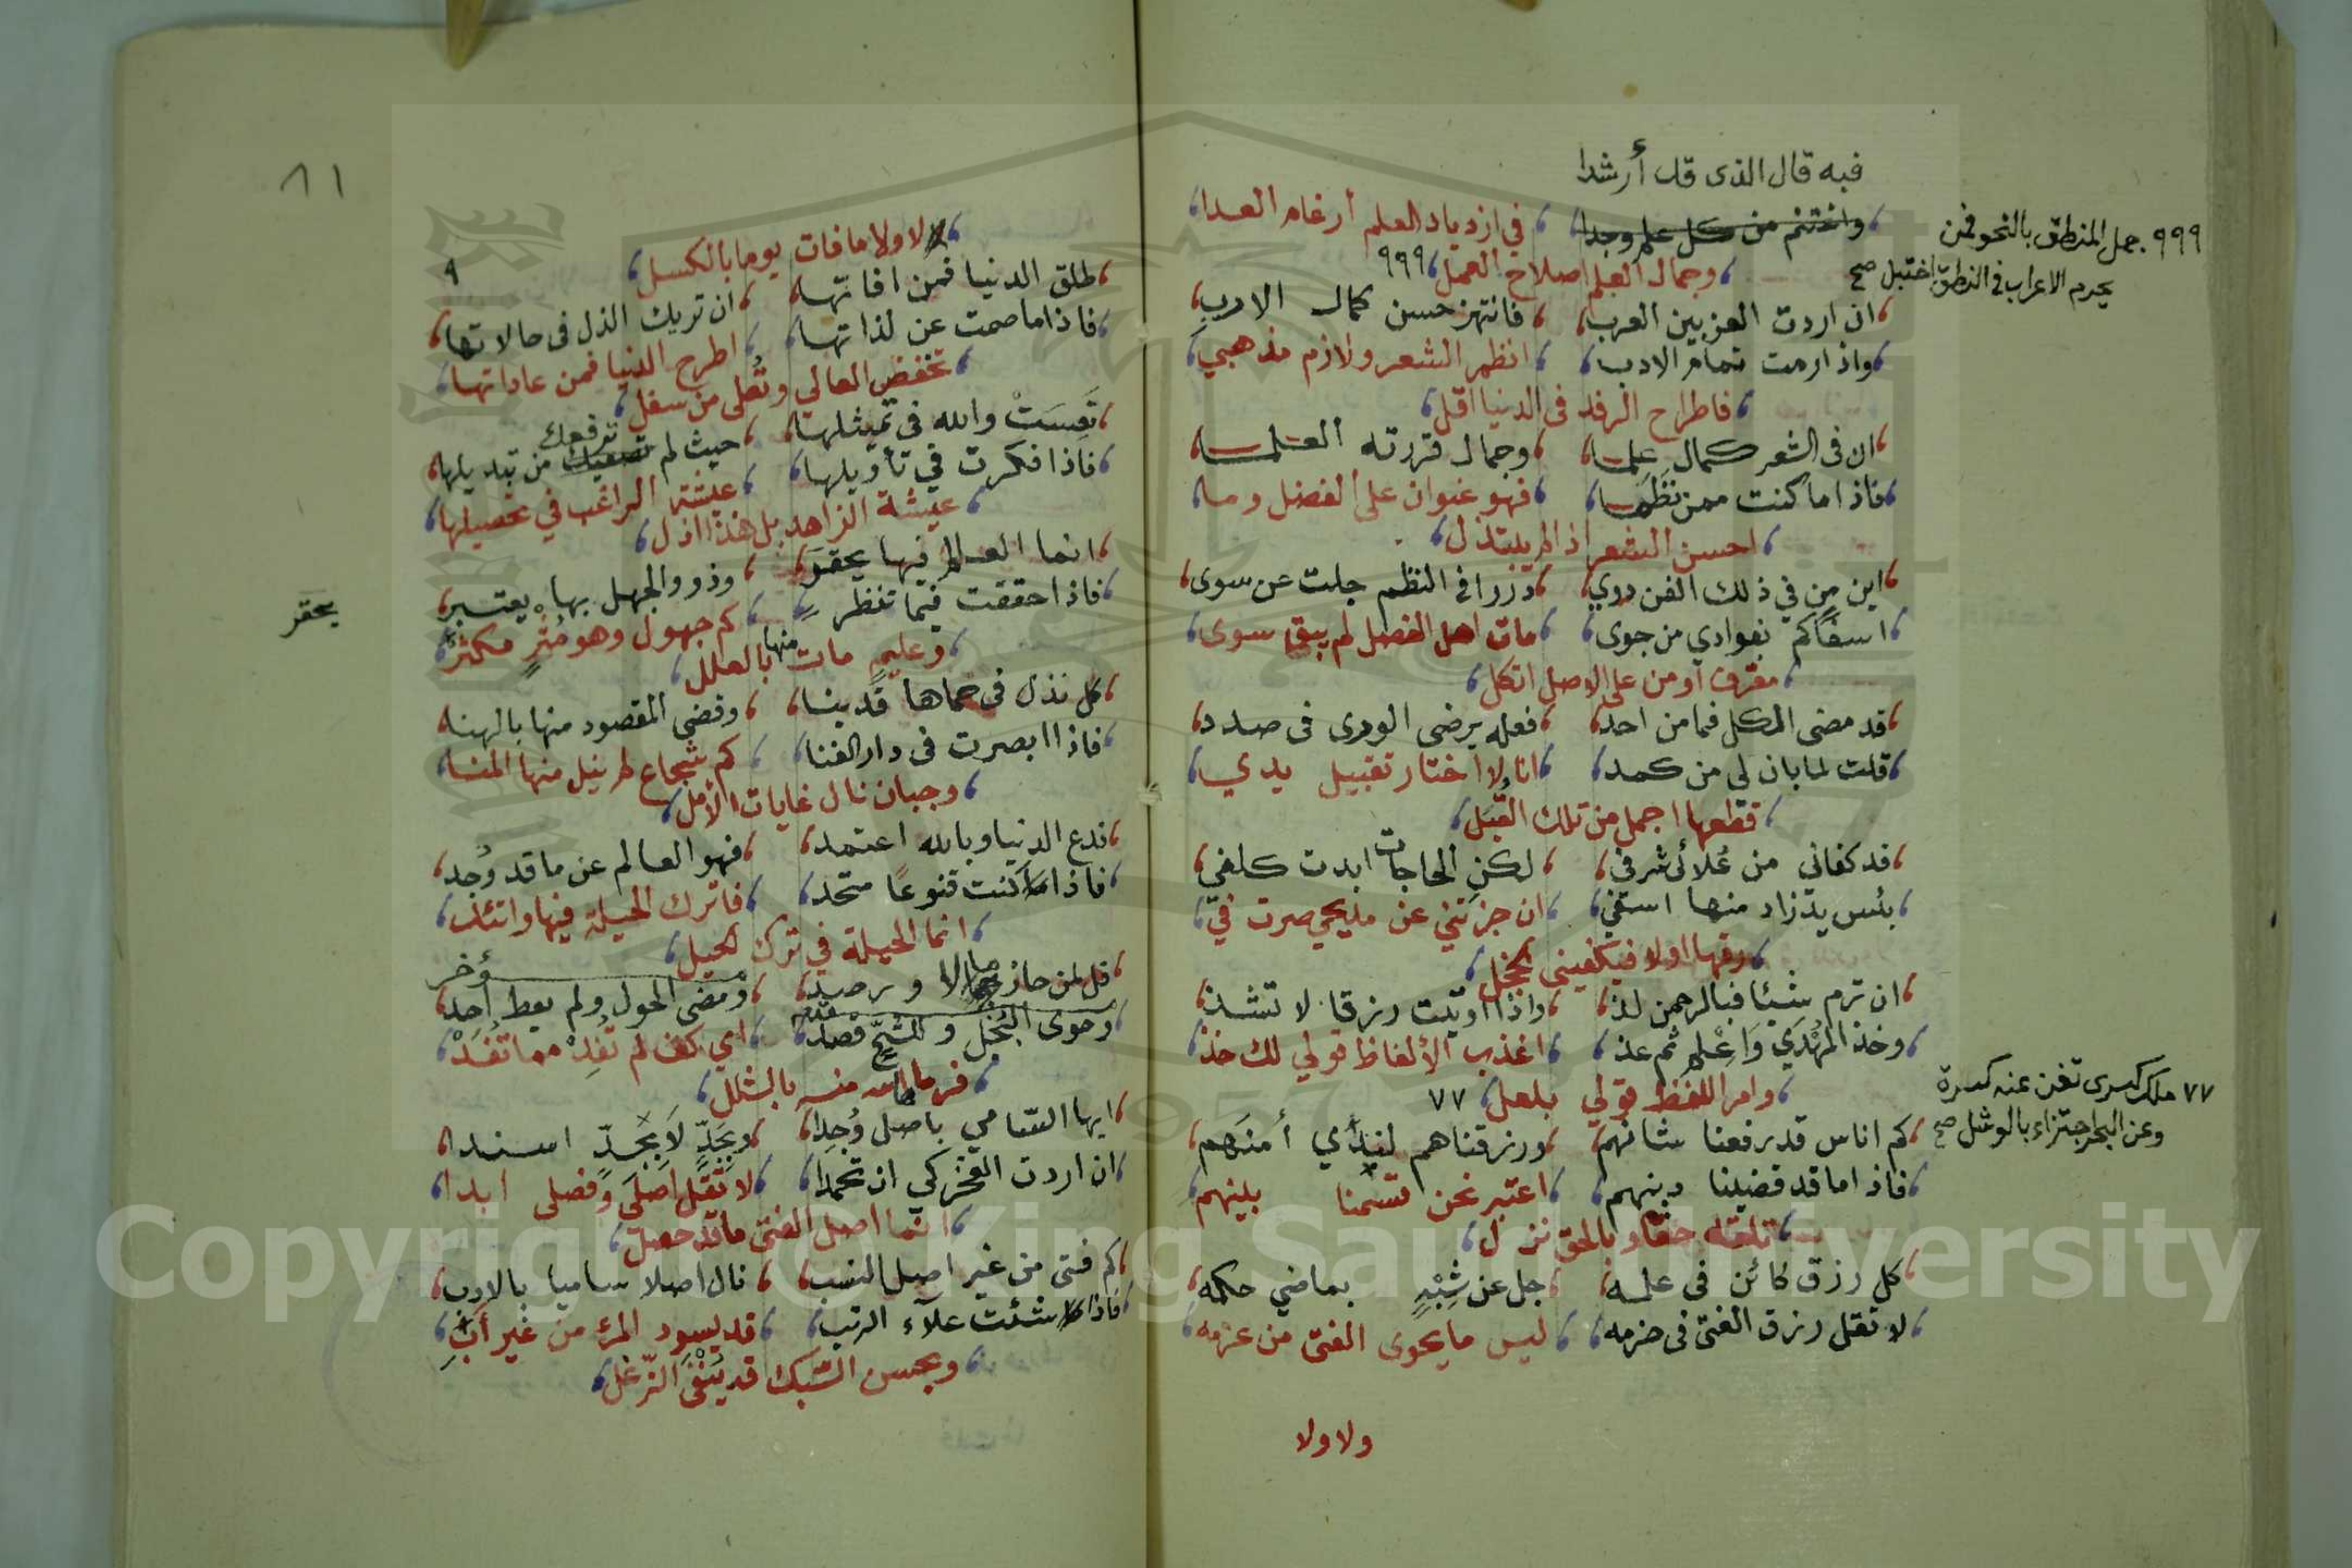 فبه قال الذى قد أرشدا
واغتنم من كل علم وجدا في ازدياد العلم أرغام العدا
وجمال العلم اصلاح العمل ٩٩٩
٩٩٩ جمل المنطق بالنحو فمن
يحرم الاعراب في النطق اختبل صح
ان اردت العز بين العرب فانتهز حسن كمال الادب
واذا رمت تمام الادب انظم الشعر ولازم مذهبي
فاطراح الرفد فى الدنيا اقل
ان فى الشعر كمال علما وجمال قررته العلما
فاذا ما كنت ممن نظما فهو عنوان على الفضل وما
احسن الشعر اذا لم يبتذل
اين من في ذلك الفن روي دررا فى النظم جلت عن سوى
اسفا كم بفوادي من جوى مات اهل الفضل لم يبق سوى
مقرف او من على الاصل اتكل
قد مضى الكل فما من احد فعله يرضى الورى فى صدد
قلت لما بان لي من كمد انا لا اختار تقبيل يدي
قطعها اجمل من تلك القُبَل
قد كفانى من عُلائى شرفي لكن الحاجات ابدت كلفي
بئس يد زاد منها اسفي ان جزتني عن مديحي صرت في
رقها اولا فيكفيني الخجل
ان ترم شيئا فبالرحمن لذ واذا اوتيت رزقا لا تشذ
وخذ المُهْدَي وَاعْلم ثم عذ اعذب الألفاظ قولي لك خذ
وامر اللفظ قولي بلعل ٧٧
٧٧ ملك كسرى تغن عنه كسرة
وعن البحر اجتزاء بالوشل صح
كم اناس قد رفعنا شانهم ورزقناهم أمنهم
فاذا ما قد قضينا دينهم اعتبر نحن قسمنا بينهم
تلقه حقا وبالحق نزل
كل رزق كائن فى علمه جل عن شِبْهٍ بماضي حكمه
لا تقل رزق الفتى فى حزمه ليس ما يحوى الفتى من عزمه
ولا ولا
٨١
٩
لا ولا ما فات يوما بالكسل
طلق الدنيا فمن افاتها ان تريك الذل فى حالاتها
فاذا ما صمت عن لذاتها اطرح الدنيا فمن عاداتها
تخفض العالي وتُعلى من سفل
تَعِسَتْ والله فى تمثيلها حيث لم ترفعك من تبديلها
فاذا فكرت في تأويلها عيشة الراغب في تحصيلها
عيشة الزاهد بل هذا اذل
انما العالم فيها يحقر وذوو الجهل بها يعتبر
يحقر
فاذا حققت فيما تنظر كم جهول وهو مُثْرٍ مكثرٌ
وعليم مات منها بالعلل
كل نذل فى حماها قد ينا وقضى المقصود منها بالهنا
فاذا ابصرت فى دار الفنا كم شجاع لم ينل منها المنا
وجبان نال غايات الأمل
فدع الدنيا وبالله اعتمد فهو العالم عن ما قد وُجد
فاذا كنت قنوعًا متحد فاترك الحيلة فيها واتئد
انما الحيلة في ترك الحيل
قل لمن حاز مالا ورصد ومضى الحول ولم يعط احد
مؤخر
وحوى البُخْل وللشُحّ قصد اي كف لم تُفِدْ مما تُفَدْ
مقدم
فرماها الله منه بالشلل
ايها السامي باصل وُجِدا وبجَدٍّ لَا بِجِدٍّ اسندا
ان اردت الفخر كي ان تحمدا لا تقل اصلى وفصلى ابدا
انما اصل الفتى ما قد حصل
كم فتى من غير اصل النسب نال اصلا ساميا بالادب
فاذا شئت علآء الرتب قد يسود المرء من غير أبٍ
وبحسن السَّبك قد يُنْفَى الزّغل
Copyright © King Saud University
1957